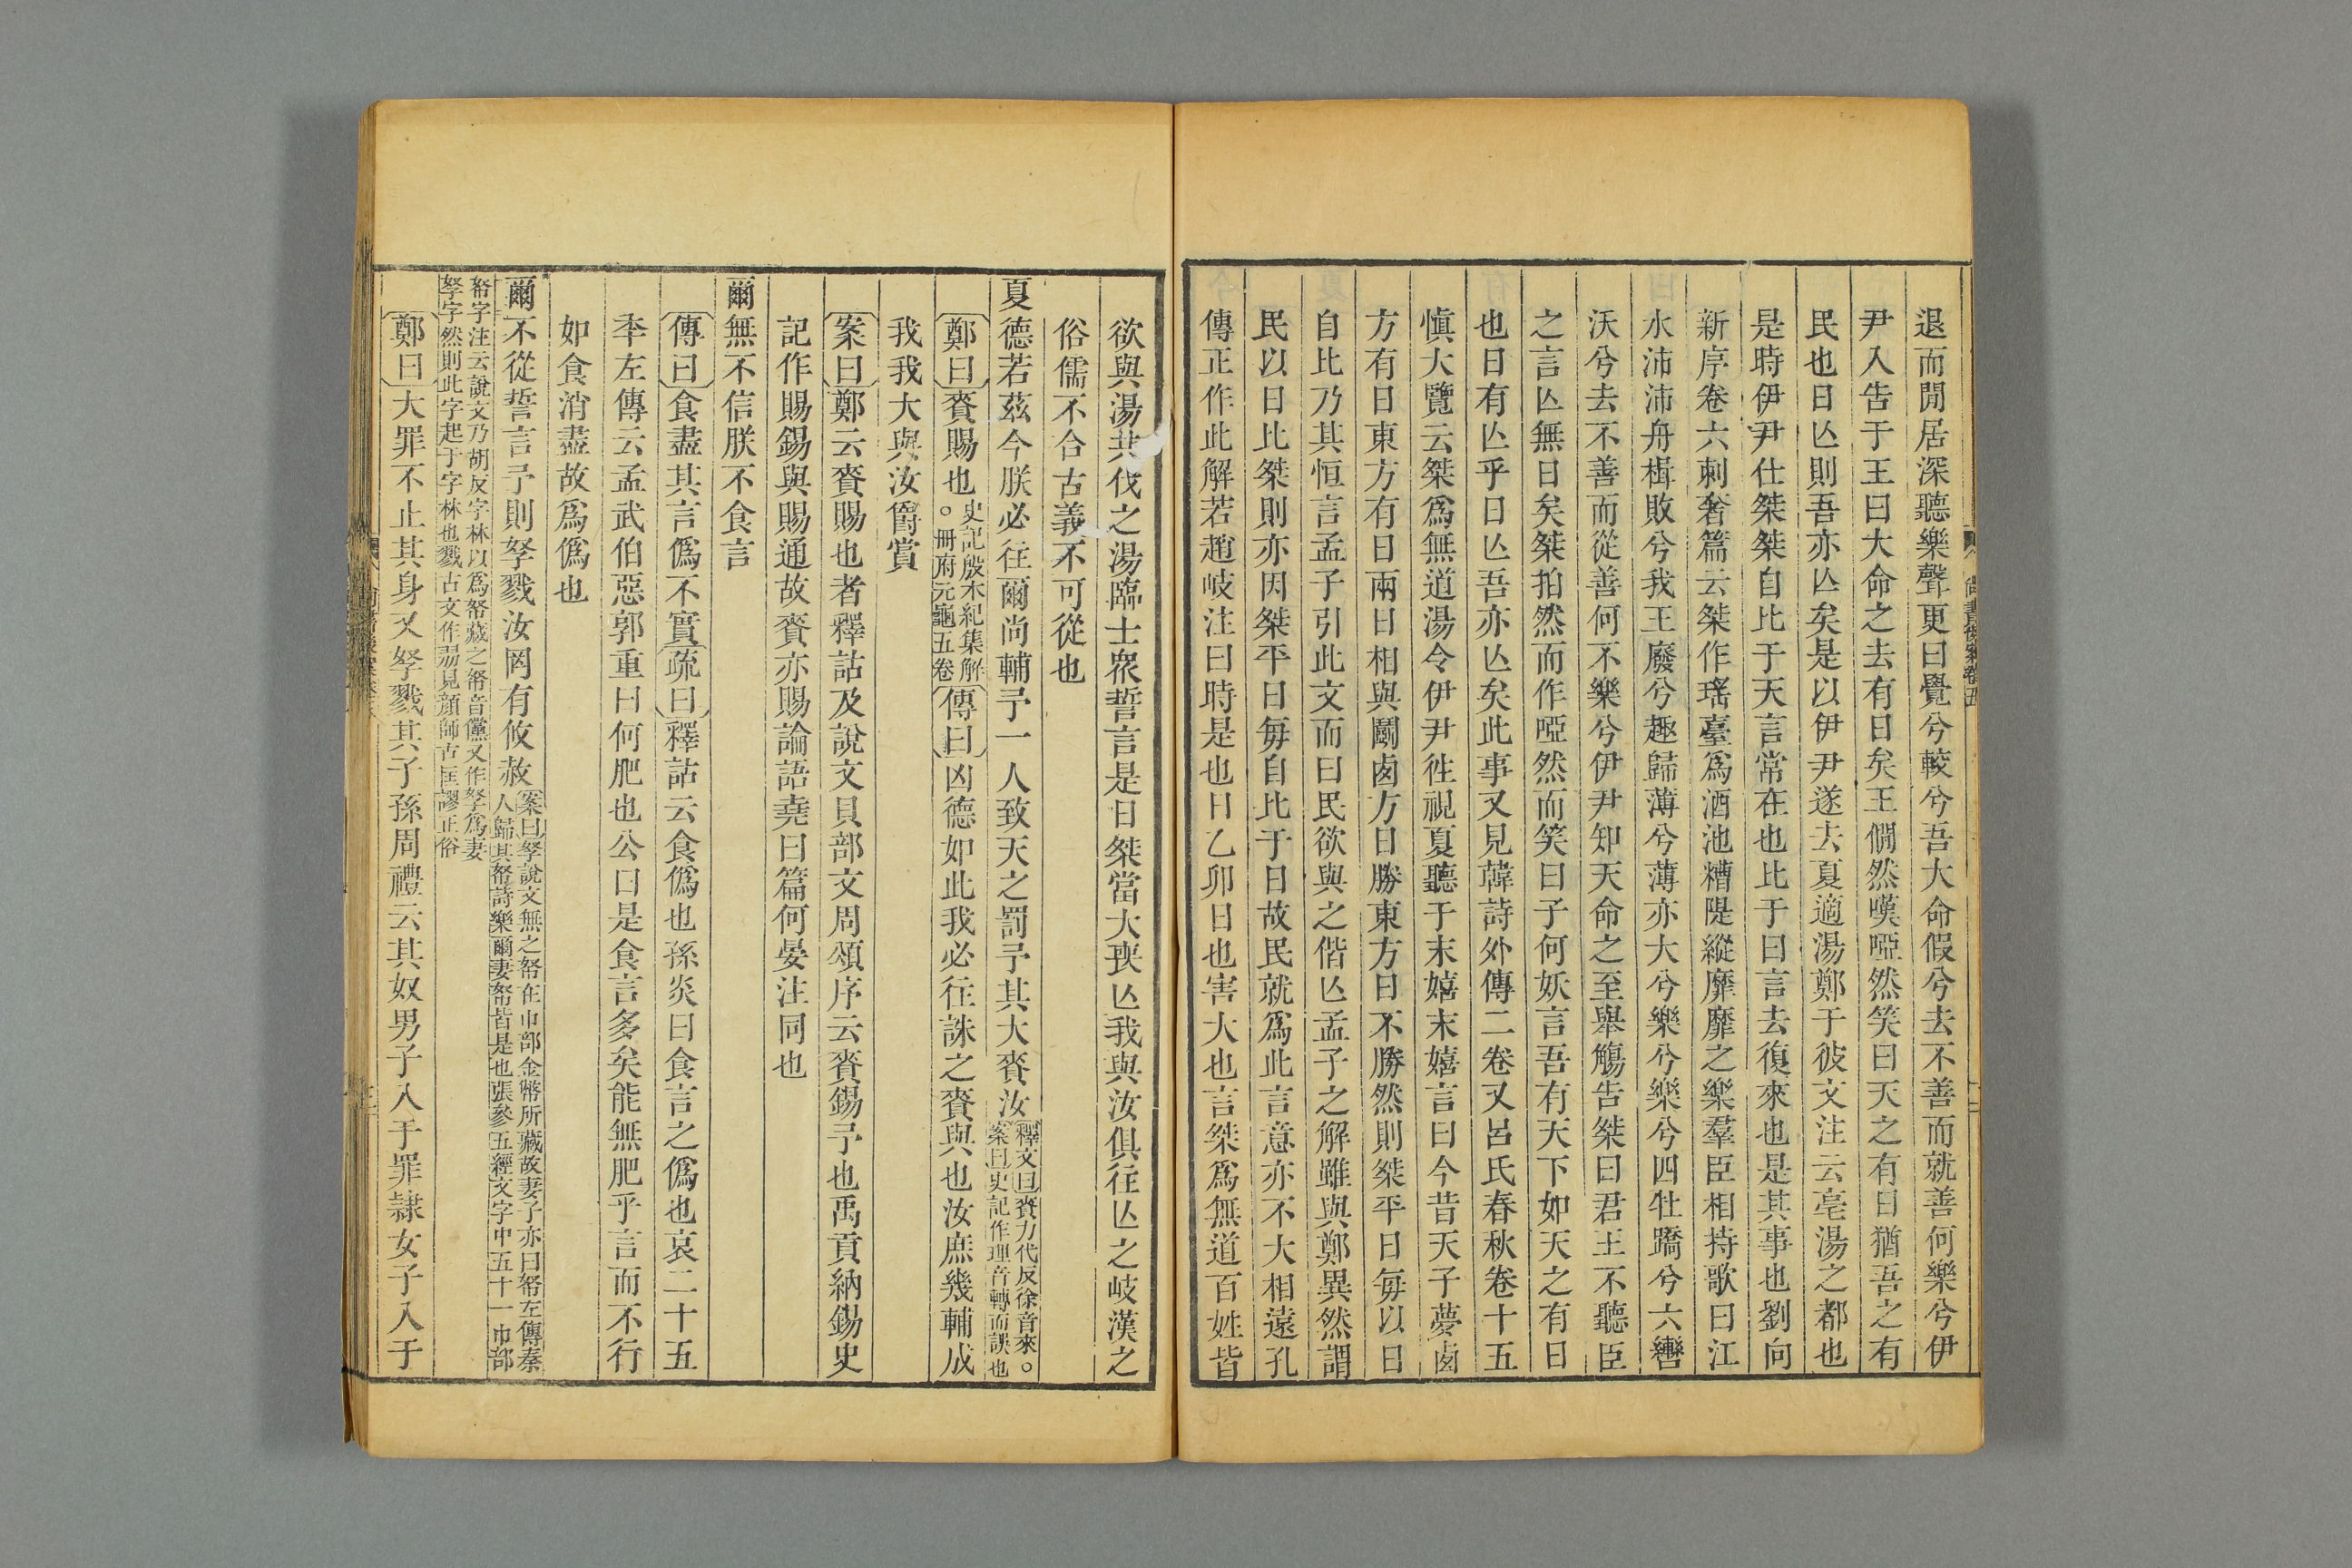 尚書後案卷五
退而閒居深聽樂聲更曰覺兮較兮吾大命假兮去不善而就善何樂兮伊
尹入告于王曰大命之去有日矣王僩然嘆啞然笑曰天之有日猶吾之有
民也日亾則吾亦亾矣是以伊尹遂去夏適湯鄭于彼文注云亳湯之都也
是時伊尹仕桀桀自比于天言常在也比于日言去復來也是其事也劉向
新序卷六刺奢篇云桀作瑤臺爲酒池糟隄縱靡靡之樂羣臣相持歌曰江
水沛沛舟楫敗兮我王廢兮趣歸薄兮薄亦大兮樂兮樂兮四牡蹻兮六轡
沃兮去不善而從善何不樂兮伊尹知天命之至舉觴告桀曰君王不聽臣
之言亾無日矣桀拍然而作啞然而笑曰子何妖言吾有天下如天之有日
也日有亾乎日亾吾亦亾矣此事又見韓詩外傳二卷又呂氏春秋卷十五
愼大覽云桀爲無道湯令伊尹徃視夏聽于末嬉末嬉言曰今昔天子夢𠧧
方有日東方有日兩日相與鬭𠧧方日勝東方日不勝然則桀平日每以日
自比乃其恒言孟子引此文而曰民欲與之偕亾孟子之解雖與鄭異然謂
民以日比桀則亦因桀平日每自比于日故民就爲此言意亦不大相遠孔
傳正作此解若趙岐注曰時是也日乙卯日也害大也言桀爲無道百姓皆
欲與湯共伐之湯臨士衆誓言是日桀當大喪亾我與汝俱往亾之岐漢之
俗儒不合古義不可從也
夏德若茲今朕必往爾尚輔予一人致天之罰予其大賚汝釋文曰賚力代反徐音來。案曰史記作理音轉而誤也
鄭曰賚賜也史記殷本紀集解。冊府元龜五卷傳曰凶德如此我必往誅之賚與也汝庶幾輔成
我我大與汝爵賞
案曰鄭云賚賜也者釋詁及說文貝部文周頌序云賚錫予也禹貢納錫史
記作賜錫與賜通故賚亦賜論語堯曰篇何晏注同也
爾無不信朕不食言
傳曰食盡其言僞不實疏曰釋詁云食僞也孫炎曰食言之僞也哀二十五
秊左傳云孟武伯惡郭重曰何肥也公曰是食言多矣能無肥乎言而不行
如食消盡故爲僞也
爾不從誓言予則孥戮汝罔有攸赦案曰孥說文無之帑在巾部金幣所藏故妻子亦曰帑左傳秦人歸其帑詩樂爾妻帑皆是也張參五經文字中五十一巾部
帑字注云說文乃胡反字林以爲帑藏之帑音儻又作孥爲妻孥字然則此字起于字林也戮古文作翏見顔師古匡謬正俗
鄭曰大罪不止其身又孥戮其子孫周禮云其奴男子入于罪隷女子入于